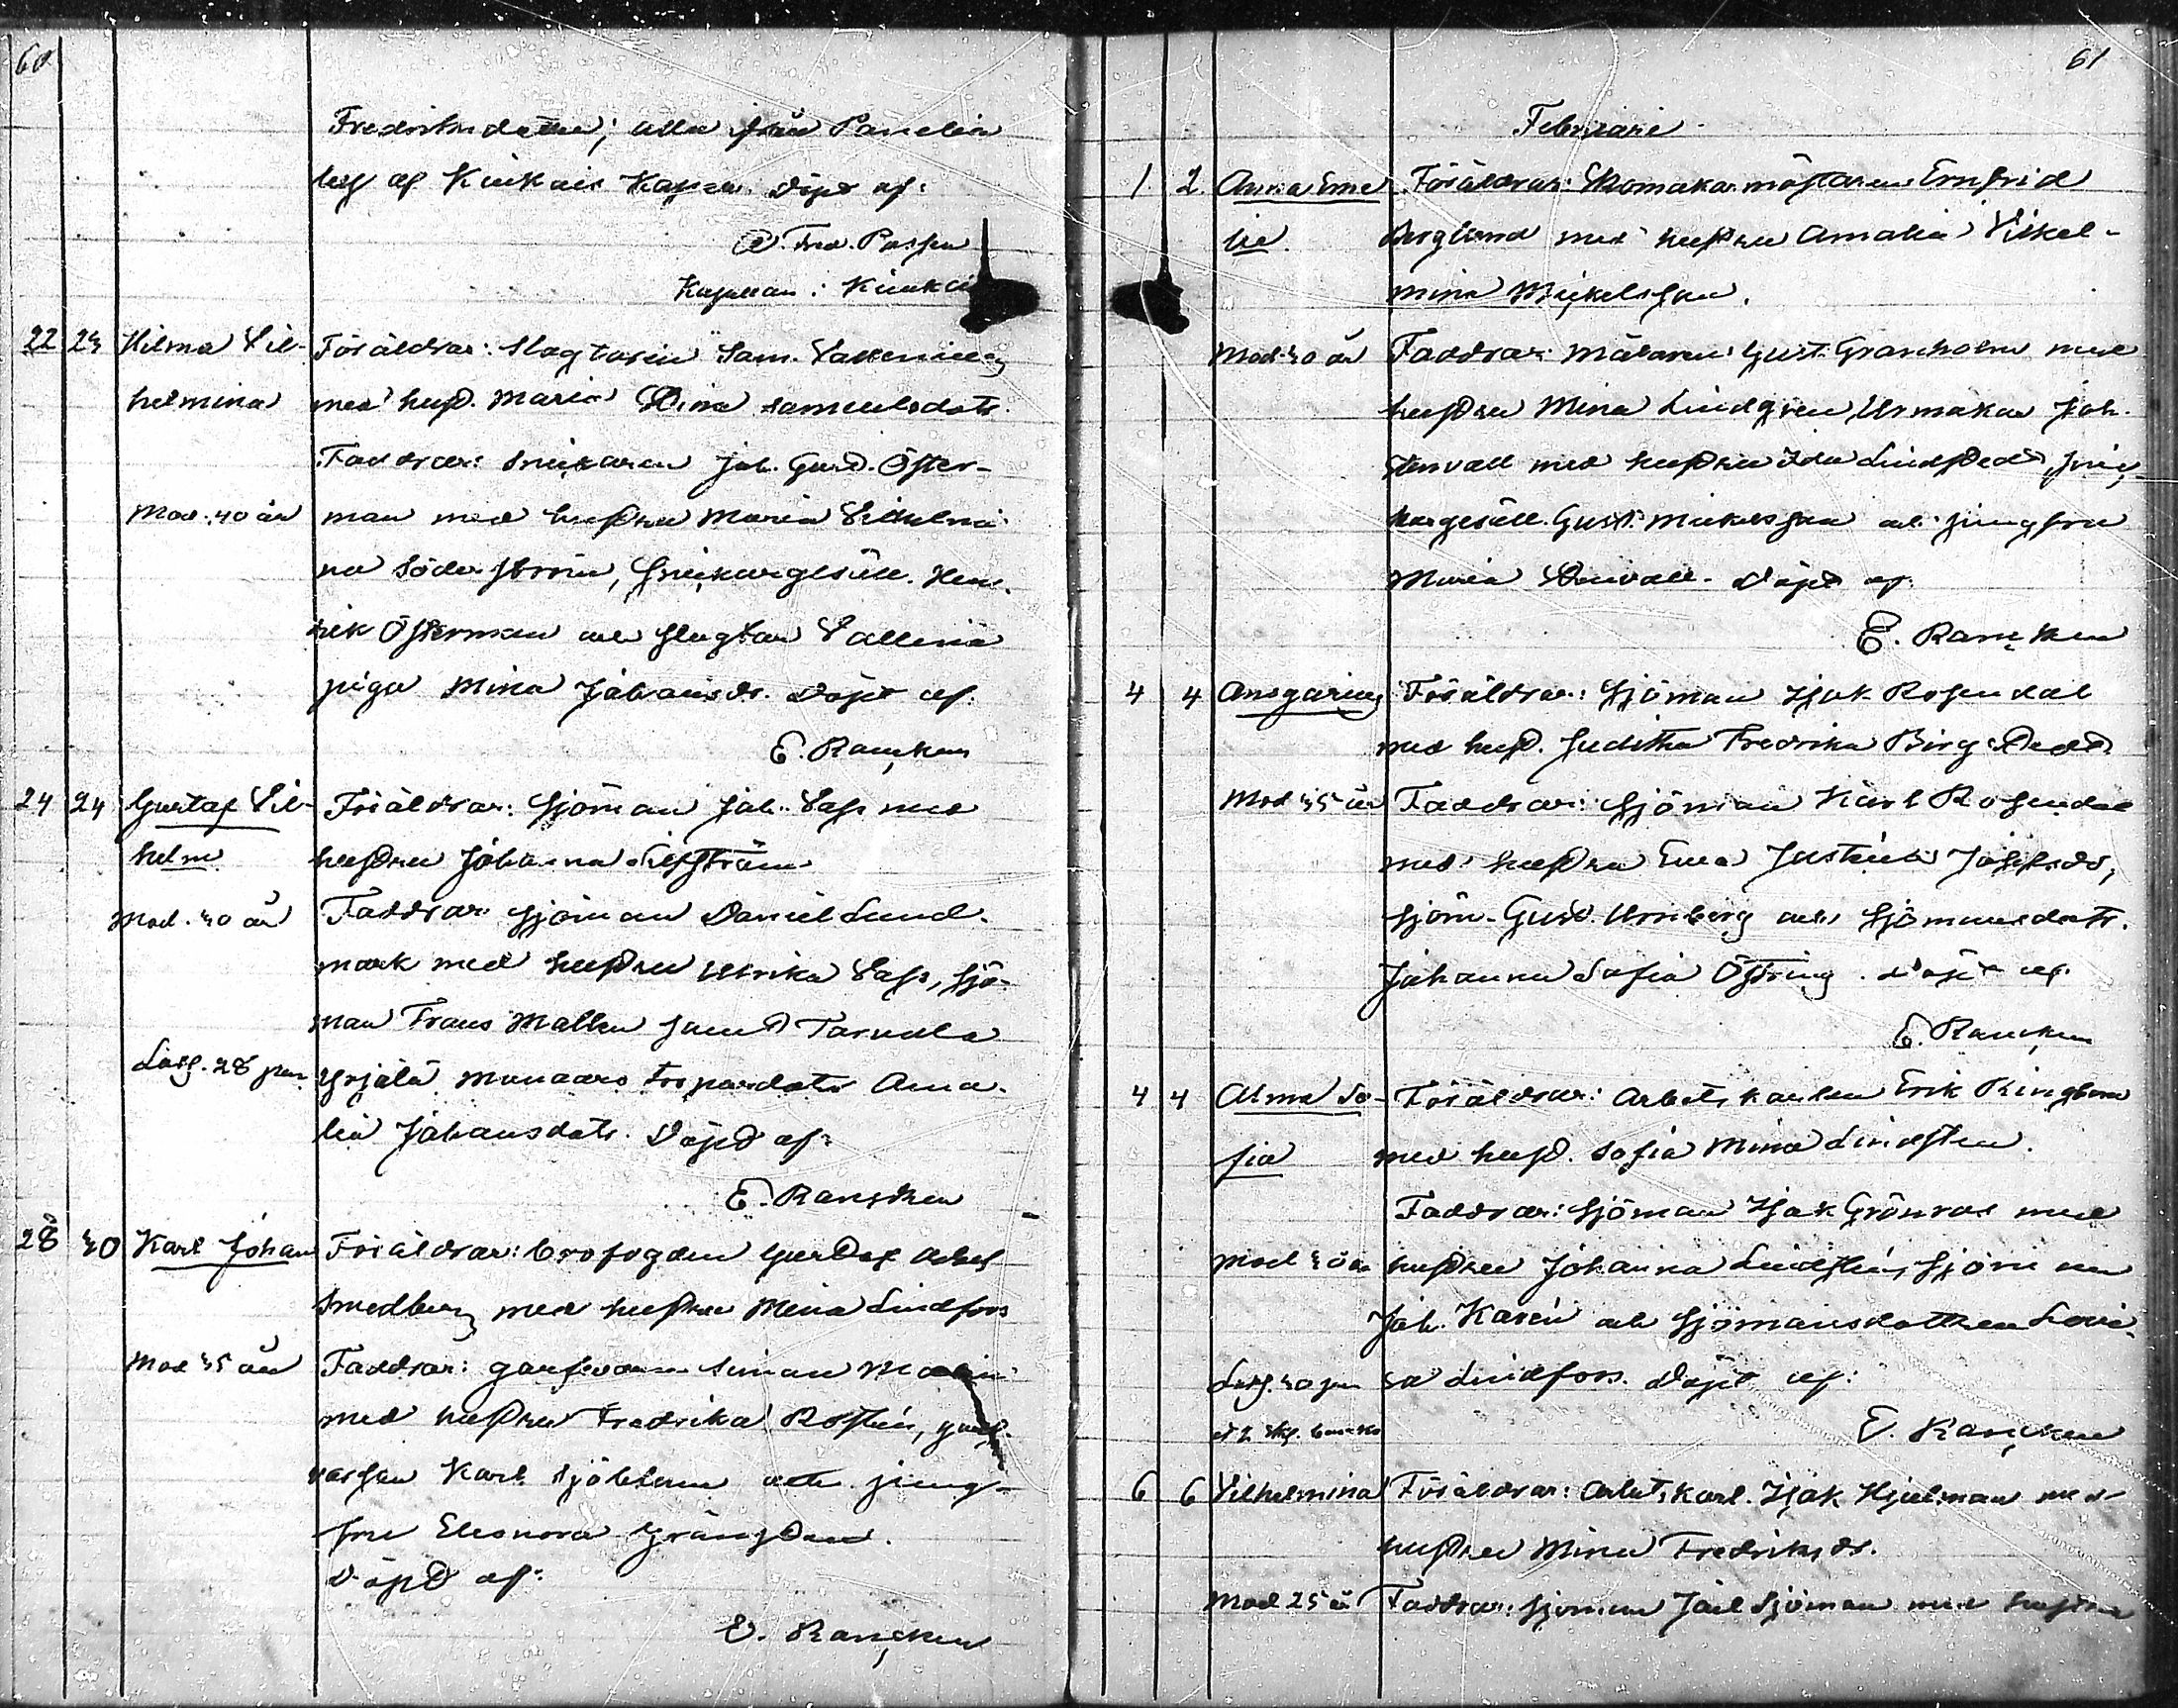 60
Fredriksdotter; alla från Panelia
by af Kiukais Kapell. Döpt af:
Fred.
Kapellan i Kiukais
22 23 Hilma Vil- Föräldrar: Slagtaren Sam. Vallenius
helmina med hust. Maria Stina Samuelsdotr.
Faddrar: Snickaren Joh. Gust. Öster-
Mod. 40 år man med hustru Maria Vilhelmi-
na Söderström, snickargesäll. Hen-
rik Österman och slagtar Vallenii
piga Mina Johansdr. Döpt af:
E. Rancken
24 24 Gustaf Vil- Föräldrar: Sjöman Joh. Vass med
helm hustru Johanna
Mod. 30 år Faddrar: Sjöman Daniel Lund-
mark med hustru Ulrika Vass, sjö-
man Frans Mallen samt
Lösg. 28 pen. Yrjälä Torpardotr Ama-
lia Johansdotr. Döpt af:
E. Rancken
28 30 Karl Johan Föräldrar: Brofogden Gustaf Adolf
Smedberg med hustru Mina Lindfors
Mod 35 år Faddrar: garfvaren Simon
med hustru Fredrika Rostén,
Karl Sjöblom och jung-
fru Eleonora
Döpt af:
E. Rancken
61
Februari
1 2 Anna Eme- Föräldrar: Skomakarmästaren Ernfrid
lie. Berglund med hustru Amalia Vilhel-
mina Mickelsson.
Mod. 30 år Faddrar: Målaren Gust. Granholm med
hustru Mina Lindgren, Urmakar Joh.
Stenvall med hustru Ida Lindstedt, snic-
kargesäll. Gust. Mickelsson och jungfru
Maria Stenvall. Döpt af:
E. Rancken
4 4 Ansgarius Föräldrar: Sjöman Isak Rosendal
med hust. Juditha Fredrika Bergstedt
Mod 35 år Faddrar: Sjöman Karl Rosendal
med hustru Eva Justina Josefsdr,
sjöm. Gust. Arnberg och sjömansdotr.
Johanna Sofia Östring. Döpt af:
E. Rancken
4 4 Alma So- Föräldrar: Arbetskarlen Erik Ringbom
fia med hust. Sofia Mina Lindsten.
Faddrar: Sjöman Isak Grönroos med
Mod 30 år hustru Johanna Lindstén, Sjöman
Joh. Karén och Sjömansdottren Lovi-
Lösg. 30 pen sa Lindfors. Döpt af:
E. Rancken
6 6 Vilhelmina Föräldrar: Arbetskarl. Isak Hjulman med
hustru Mina Fredriksdr.
Mod 25 år Faddrar: Sjöman Joel Sjöman med hustru